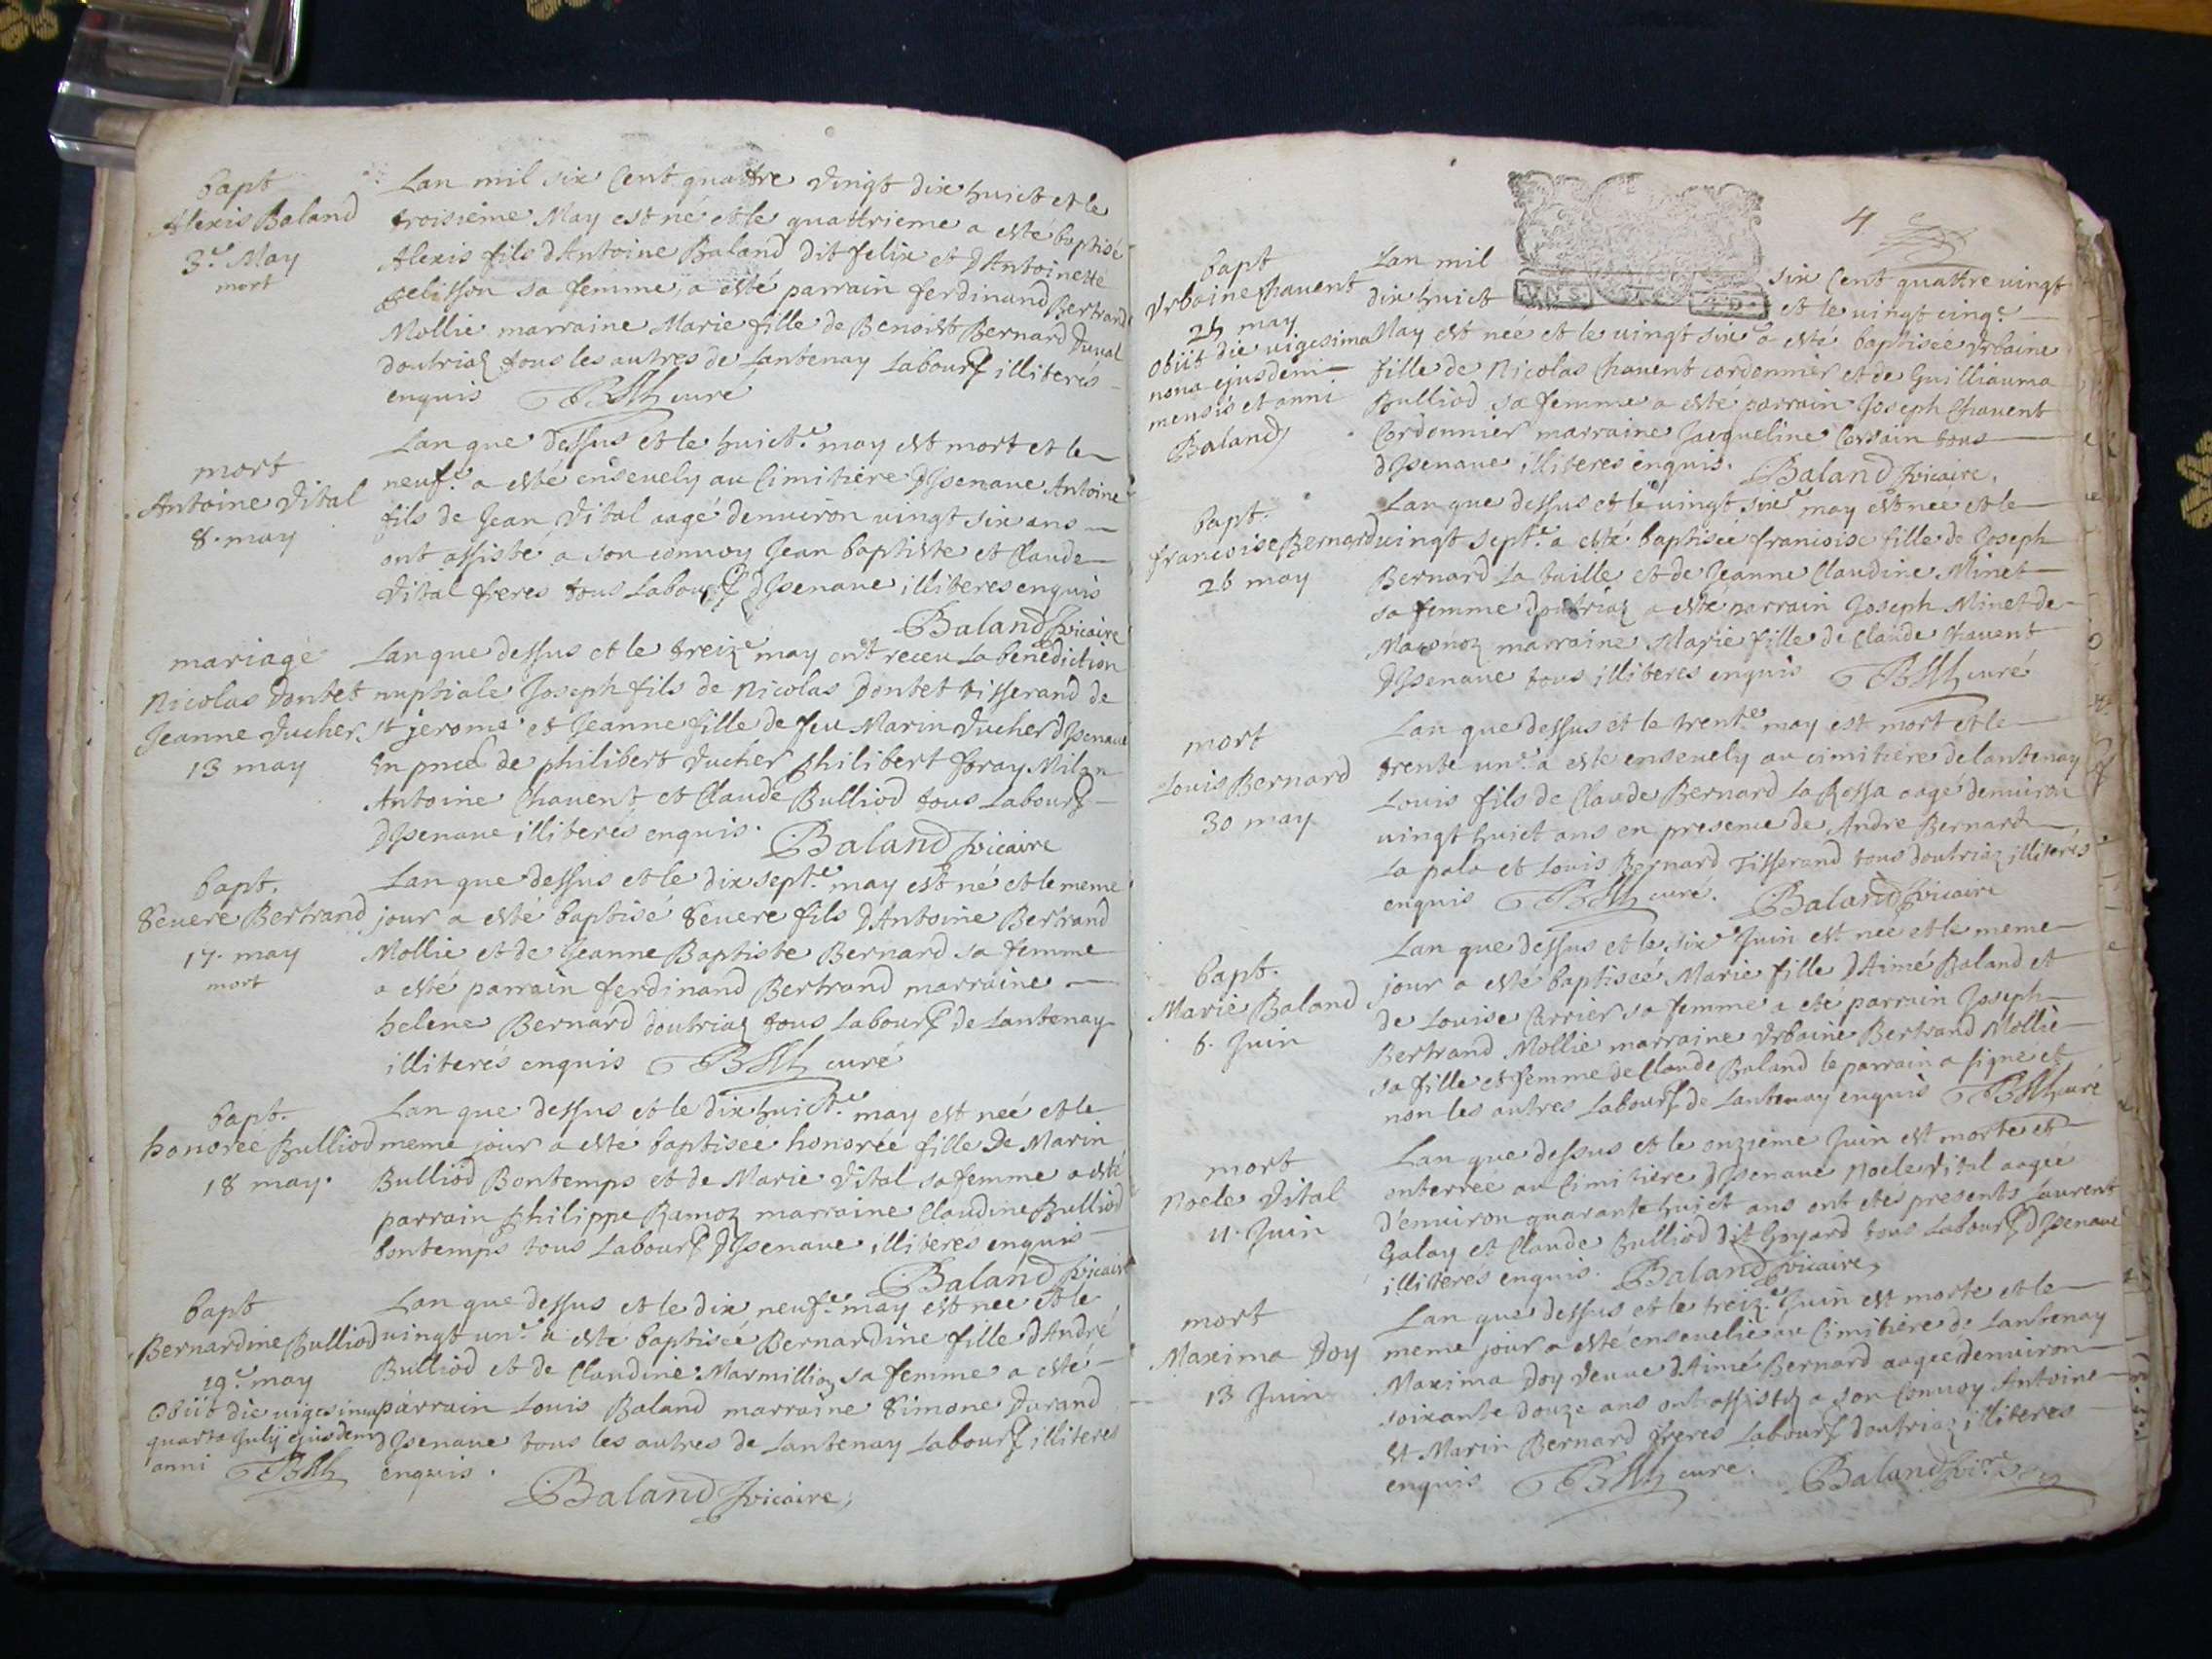 bapt
Alexis Baland
3.e May
mort
Lan mil six Cent quattre vingt dix huict et le
troisième May est né et le quattrieme a esté baptisé
Alexis fils dAntoine Baland dit felix et dAntoinette
pelisson sa femme, a esté parrain ferdinand Bertrand
Mollie marraine Marie fille de Benoist Bernard Duval
doutriaz tous les autres de Lantenay Labour illiterés
enquis curé
mort
Antoine Vital
8. may
Lan que dessus et le huict.e may est mort et le
neuf.e a esté ensevely au Cimitière dIsenave Antoine
fils de Jean Vital aagé denuiron vingt six ans
ont assisté a son convoy Jean baptiste et Claude
Vital freres tous Labour dIsenave illiteres enquis
Baland vicaire
mariage
Nicolas Dontet
Jeanne Vucher
13 may
Lan que dessus et le treiz.e may ont receu La benediction
nuptiale Joseph fils de Nicolas Dontet tisserand de
st jerome et Jeanne fille de feu Marin Vucher dIsenave
En pnce de philibert Vucher philibert foray Milan
Antoine Chavent et Claude Bulliod tous Labour
dIsenave illiterés enquis. Baland vicaire
bapt.
Severe Bertrand
17. may
mort
Lan que dessus et le dix sept.e may est né et le meme
jour a esté baptisé Severe fils dAntoine Bertrand
Mollie et de Jeanne Baptiste Bernard sa femme
a esté parrain ferdinand Bertrand marraine
helene Bernard doutriaz tous Labour de Lantenay
illiterés enquis curé
bapt.
honorée Bulliod
18 may.
Lan que dessus et le dix huict.e may est neé et le
meme jour a esté baptiseé honorée fille de Marin
Bulliod Bontemps et de Marie Vital sa femme a esté
parrain philippe Ramoz marraine Claudine Bulliod
bontemps tous Labour dIsenave illiteres enquis
Baland vicaire
bapt
Bernardine Bulliod
19.e may
Obiit die vigesima
quarta Julij ejusdem
anni
Lan que dessus et le dix neuf.e may est neé et le
vingt un.e a esté baptisée Bernardine fille dAndré
Bulliod et de Claudine Marmillioz sa femme a esté
parrain Louis Baland marraine Simone Durand
dIsenave tous les autres de Lantenay Labour illiteres
enquis.
Baland vicaire,
4
bapt
Urbaine Chavent
25 may
Obiit die vigesima
nona ejusdem
mensis et anni
Baland
Lan mil six Cent quattre vingt
dix huict et le vingt cinq.e
May est neé et le vingt six.e a esté baptiseé Urbaine
fille de Nicolas Chavent cordonnier et de Guilliauma
Bulliod sa femme a esté parrain Joseph Chavent
Cordonnier marraine Jacqueline Cersain tous
dIsenave illiteres enquis. Baland vicaire.
bapt.
francoise Bernard
26 may
Lan que dessus et le vingt six.e may est neé et le
vingt sept.e a esté baptiseé francoise fille de Joseph
Bernard La taille et de Jeanne Claudine Minet
sa femme doutriaz a esté parrain Joseph Minet de
Maconoz marraine Marie fille de Claude Chavent
dIsenave tous illiteres enquis curé
mort
Louis Bernard
30 may
Lan que dessus et le trent.e may est mort et le
trente un.e a esté ensevely au cimitière de lantenay
Louis fils de Claude Bernard La Rossa aagé denuiron
vingt huict ans en presence de Andre Bernard
La pala et Louis Bernard Tisserand tous doutriaz illiterés
enquis curé. Baland vicaire
bapt.
Marie Baland
6. Juin
Lan que dessus et le six.e Juin est neé et le meme
jour a esté baptiseé Marie fille dAimé Baland et
de Louise Carrier sa femme a eté parrain Joseph
Bertrand Mollie marraine Urbaine Bertrand Mollie
sa fille et femme de Claude Baland le parrain a signe et
non les autres Labour de Lantenay enquis curé
mort
Noele Vital
11. Juin
Lan que dessus et le onzieme Juin est morte et
enterreé au Cimitière dIsenave Noele Vital aageé
d'enuiron quarante huict ans ont etes presents Laurent
Galay et Claude Bulliod dit Goyard tous Labour dIsenave
illiterés enquis. Baland vicaire,
mort
Maxima Doy
13 Juin
Lan que dessus et le treiz.e Juin est morte et le
meme jour a esté ensevelie au Cimitière de Lantenay
Maxima Doy veuve dAimé Bernard aageé denuiron
soixante douze ans ont assistez a son Convoy Antoine
et Marin Bernard freres Labour doutriaz illiteres
enquis curé. Baland